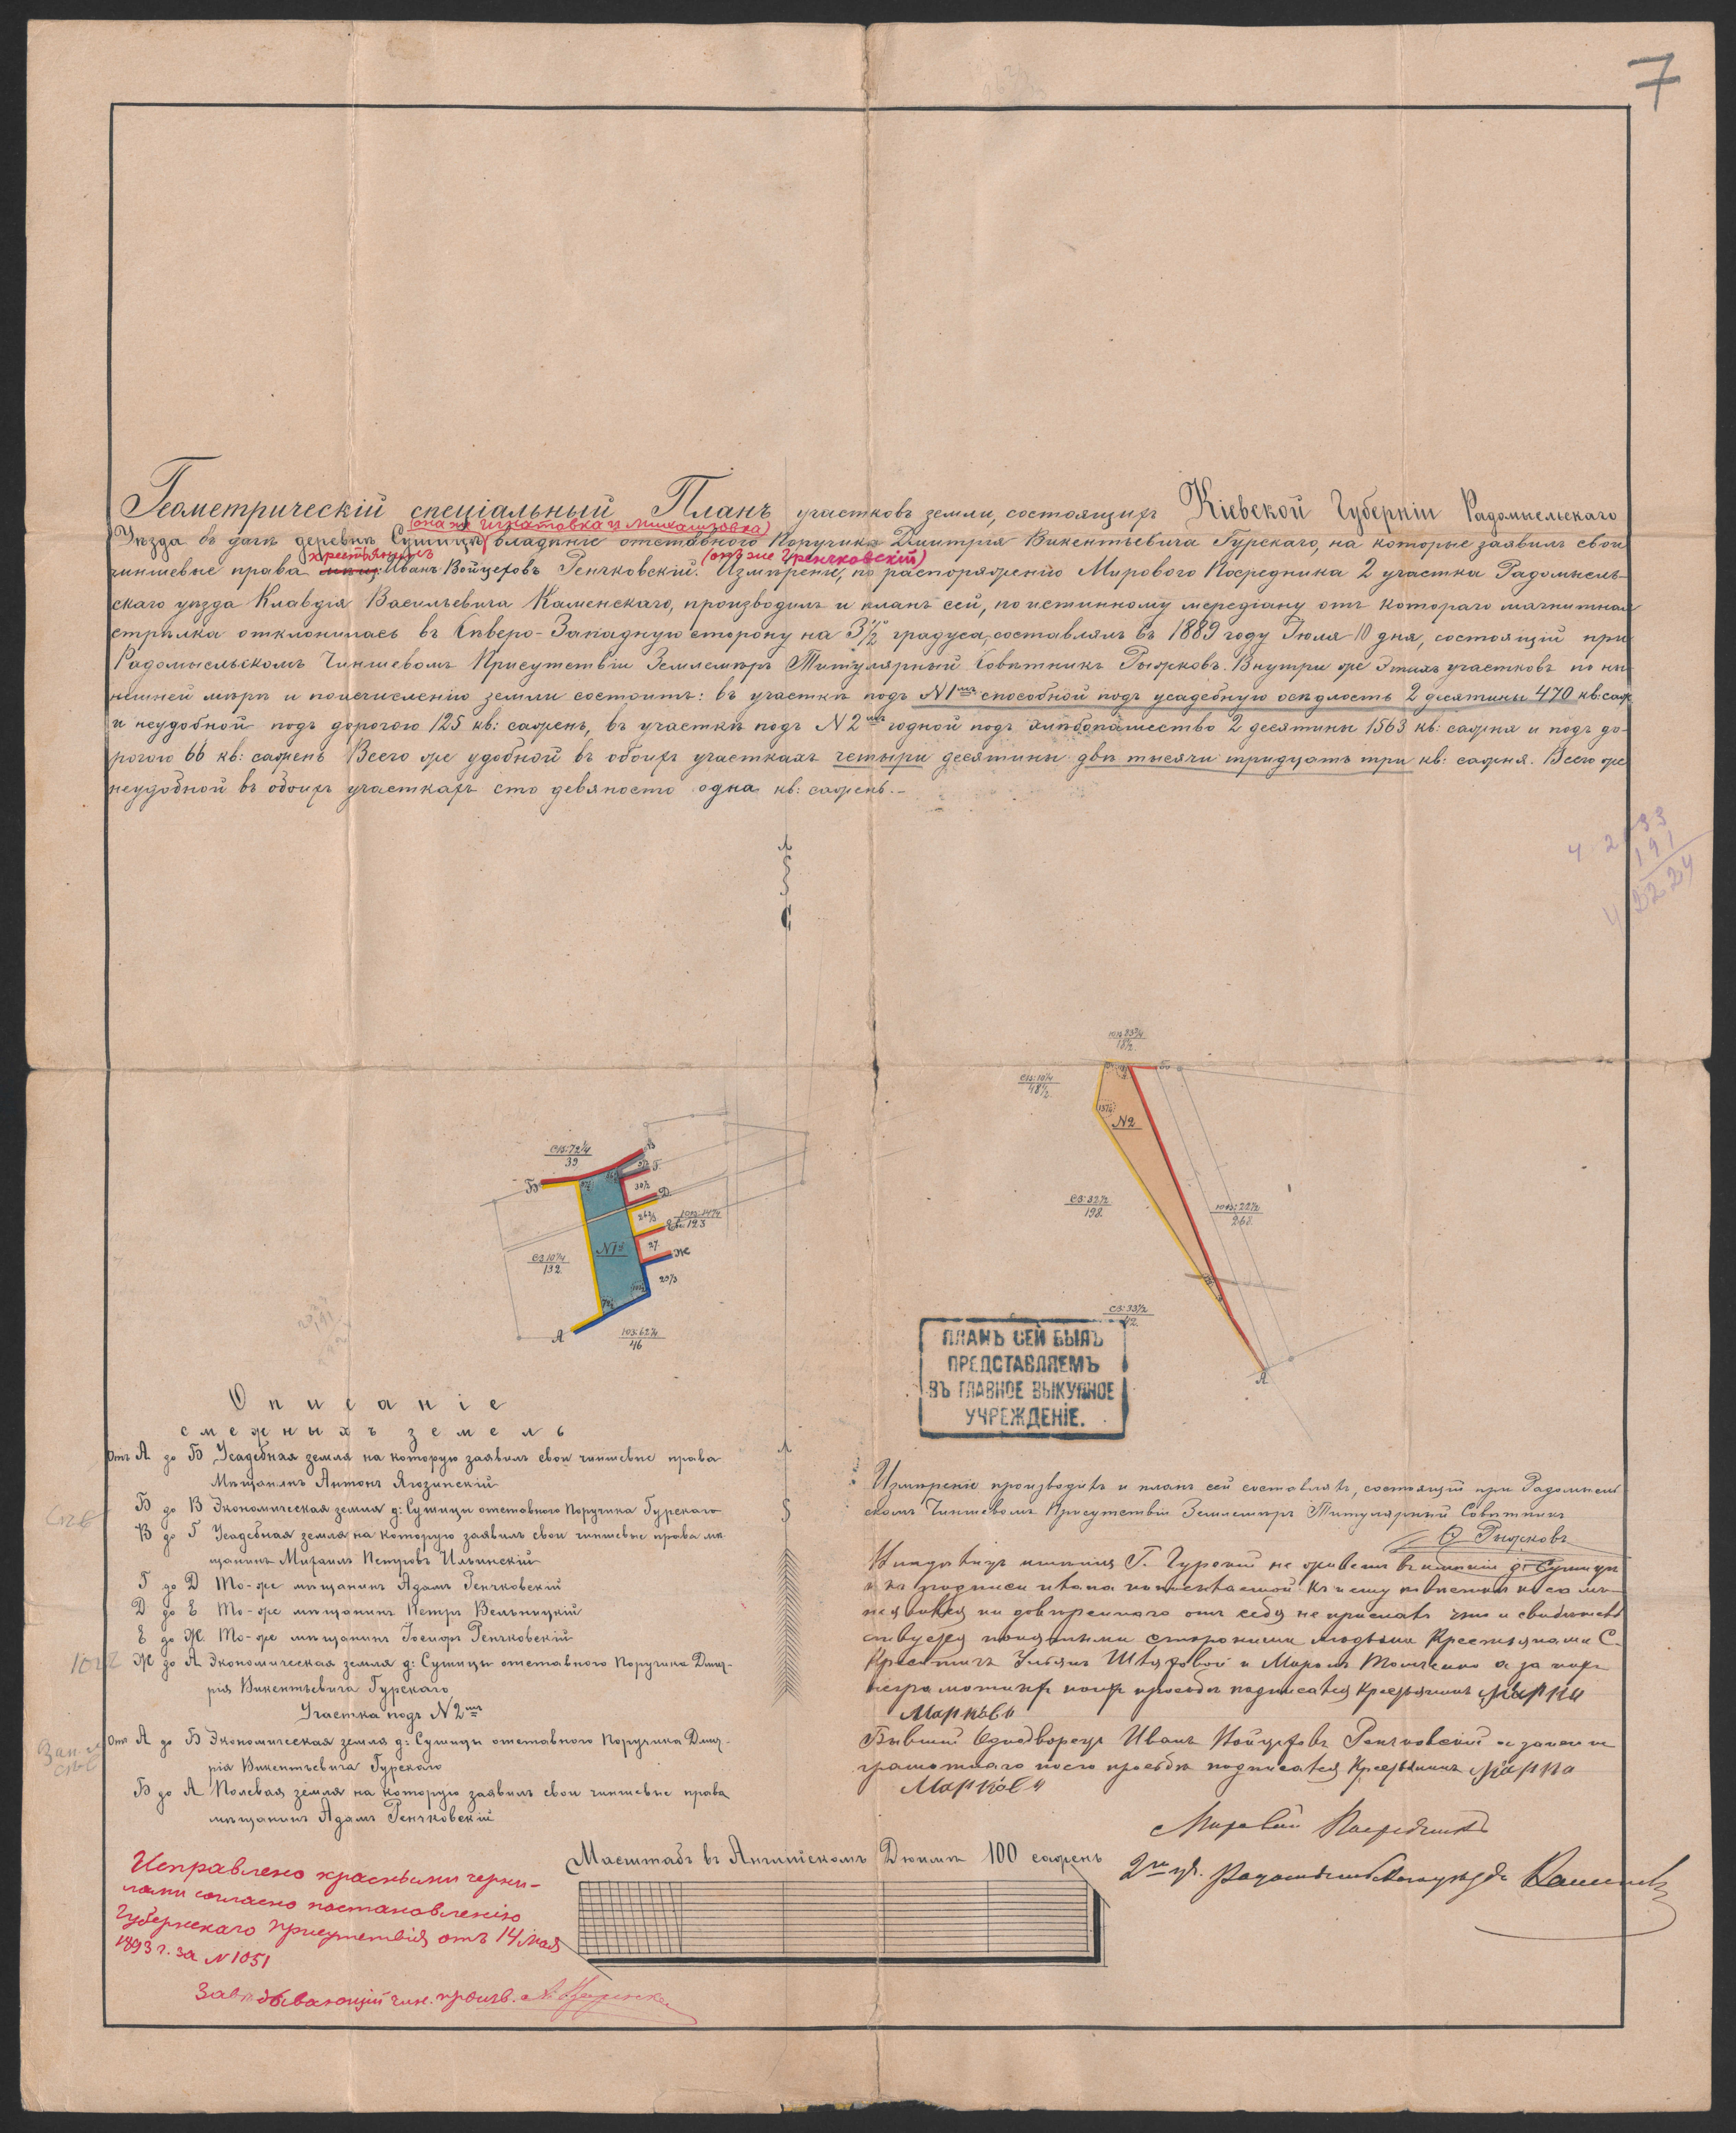 7
Геометрическій спеціальный Планъ участковъ земли, состоящихъ Кіевской Губерніи Радомысльскаго
(она же Игнатовка и Михашловка)
Уѣзда въ дачѣ деревни Сушицы владѣніе отставного Поручика Дмитрія Викентьевича Гурскаго, на которые заявилъ свои
крестьянинъ (онъ же Гренчковскій)
чиншевые права Иванъ Войцеховъ Генчковскій. Измѣреніе, по распоряженію Мирового Посредника 2 участка Радомысль-
скаго уѣзда Клавдія Васильевича Каменскаго, производилъ и планъ сей, по истинному меридіану отъ котораго магнитная
стрѣлка отклонилась въ Сѣверо-Западную сторону на 3½ градуса, составлялъ въ 1889 году Іюля 10 дня, состоящій при
Радомысльскомъ Чиншевомъ Присутствіи Землемѣръ Титулярный Совѣтникъ Рыжковъ. Внутри же этихъ участковъ по ны-
нешней мѣрѣ и по исчисленію земли состоитъ: въ участкѣ подъ N1мъ способной подъ усадебную осѣдлость 2 десятины 470 кв: саж
и неудобной подъ дорогою 125 кв: сажень, въ участкѣ подъ N2мъ годной подъ хлѣбопашество 2 десятины 1563 кв: сажня и подъ до-
рогою 66 кв: сажень Всего же удобной въ обоихъ участкахъ четыри десятины двѣ тысячи тридцать три кв: сажня. Всего же
неудобной въ обоихъ участкахъ сто девяносто одна кв: сажень.-
4 2033
191
4 2224
ЮВ:83¾
18½
СВ:10¼
48½
157½
N2
СЗ:32½
198.
ЮВ:22½
268.
СЗ:33½
А
СВ:72¼
39
Б
В
Г
30½
Д
26⅔
ЮВ:14¼
Ев:123
27.
Ж
29⅓
N1й
СЗ 10¼
132
А
ЮЗ:62¼
46
ПЛАНЪ СЕЙ БЫЛЪ
ПРЕДСТАВЛЯЕМЪ
ВЪ ГЛАВНОЕ ВЫКУПНОЕ
УЧРЕЖДЕНІЕ.
Описаніе
смежныхъ земель
Отъ А до Б Усадебная земля на которую заявилъ свои чиншевые права
Мѣщанинъ Антонъ Ягозинскій
Б до В Экономическая земля д: Сушицы отставного Поручика Гурскаго
В до Г Усадебная земля на которую заявилъ свои чиншевые права мѣ-
щанинъ Михаилъ Петровъ Ильинскій
Г до Д То-же мѣщанинъ Адамъ Генчковскій
Д до Е То-же мѣщанинъ Петръ Вельницкій
Е до Ж. То-же мѣщанинъ Іосифъ Генчковскій
Ж до А Экономическая земля д: Сушицы отставного Поручика Дмит-
рія Викентьевича Гурскаго
Участка подъ N2мъ
Отъ А до Б Экономическая земля д: Сушицы отставного Поручика Дмит-
рія Викентьевича Гурскаго
Б до А Полевая земля на которую заявилъ свои чиншевые права
мѣщанинъ Адамъ Генчковскій
Измѣреніе производилъ и планъ сей составлялъ, состоящій при Радомысль-
скомъ Чиншевомъ Присутствіи Землемѣръ Титулярный Совѣтникъ
Рыжковъ
Владѣлецъ имѣнія Г. Гурскій не живетъ въ имѣніи д. Сушицы
и къ подписи плана
не явился ни довѣреннаго отъ себя не прислалъ что и свидѣтель
ствуется понятыми сторонними людьми Крестьянами С.
и Миронъ а за
неграмотныхъ ихъ просьбѣ подписался Крестьянинъ Марко
Марковъ
Бывшій Однодворецъ Иванъ Войцеховъ Генчковскій а за него не
грамотнаго по его просьбѣ подписался Крестьянинъ Марко
Марковъ
Мировой Посредникъ
2го уч. Радомысльскаго уѣзда Каменскій
Масштабъ въ Англійскомъ Дюймѣ 100 сажень
Исправлено красными черни-
лами согласно постановленію
Губернскаго Присутствія отъ 14 мая
1893 г. за N1051
Завѣдывающій чин. произв.